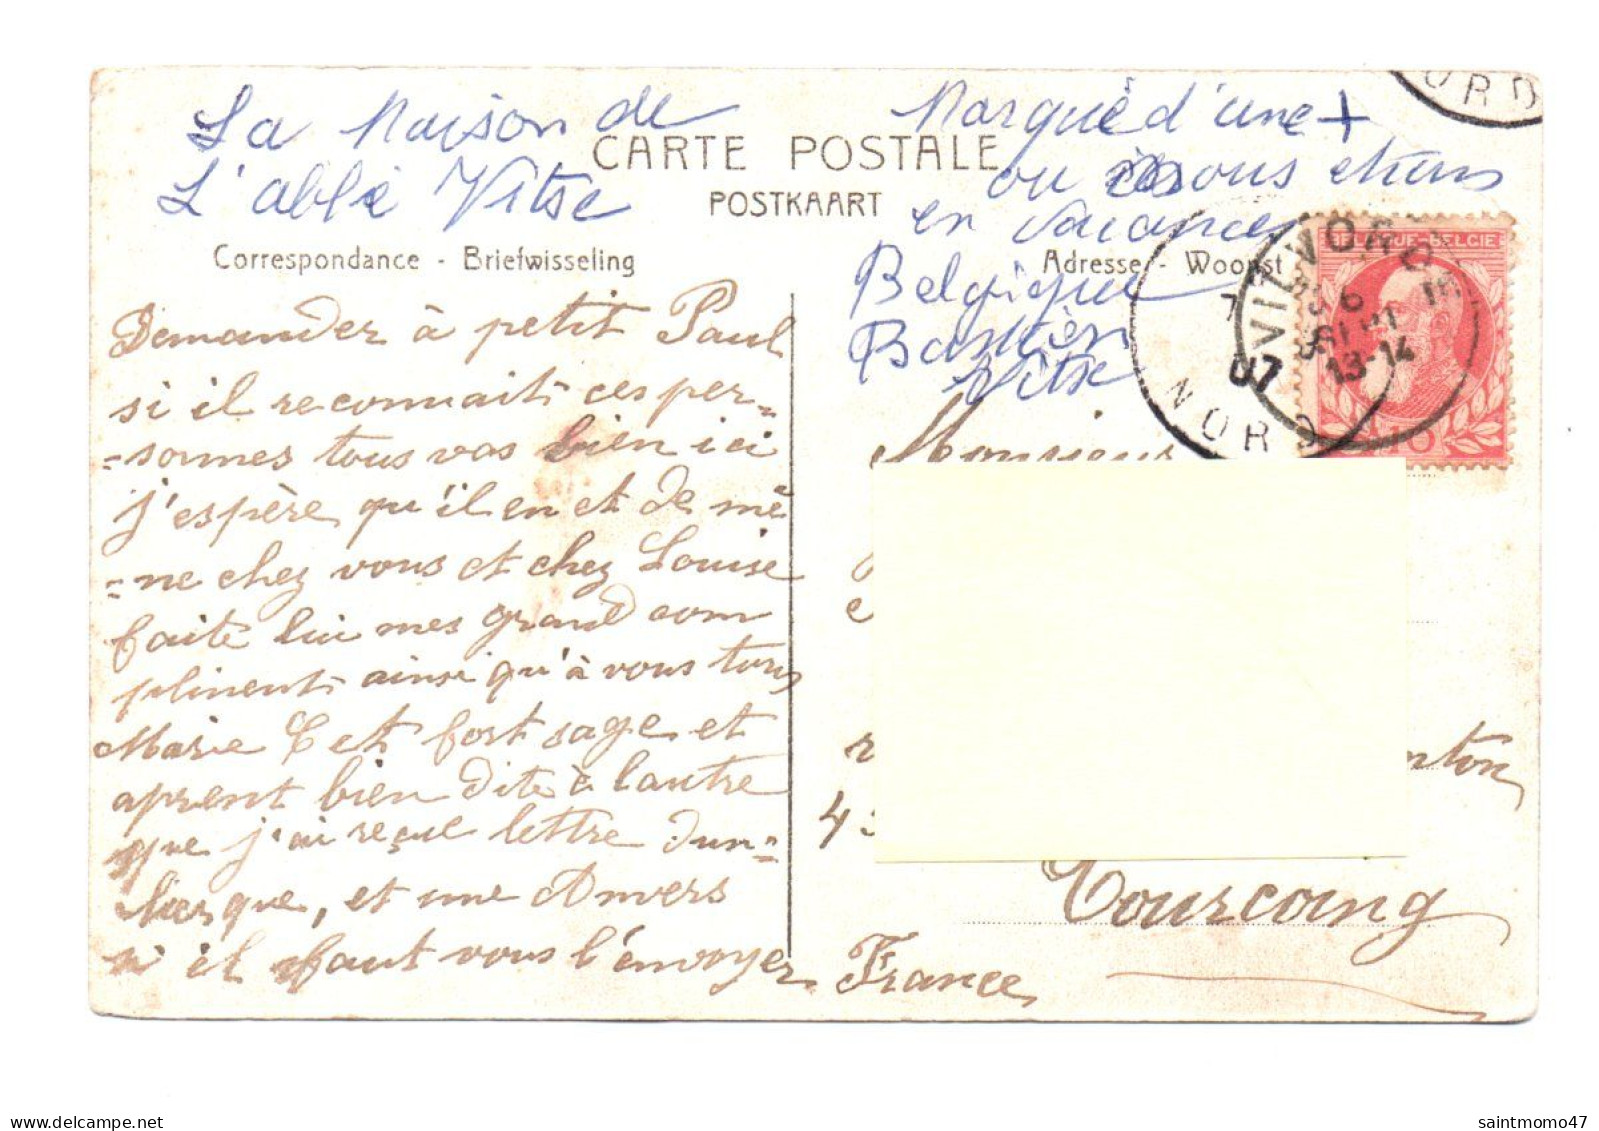 La Maison de
L'abbé Vitse
Marqué d'une +
ou nous étions
en vacances
Belgique
Bastien
Vitse
CARTE POSTALE
POSTKAART
Correspondance - Briefwisseling
Adresse - Woonst
Demander à petit Paul
si il reconnait ces per=
=sonnes tous vas bien ici
j'espère qu'il en et de mê
=me chez vous et chez Louise
faite lui mes grand com
pliment ainsi qu'à vous tous
Marie C et fort sage et
aprent bien dite à l'autre
que j'ai reçue lettre Dun=
kerque, et une Anvers
si il faut vous l'envoyer
BELGIQUE-BELGIE
VILVORDE
6
13-14
07
7
NORD
10
ORD
Monsieur
nton
4
Tourcoing
France
saintmomo47